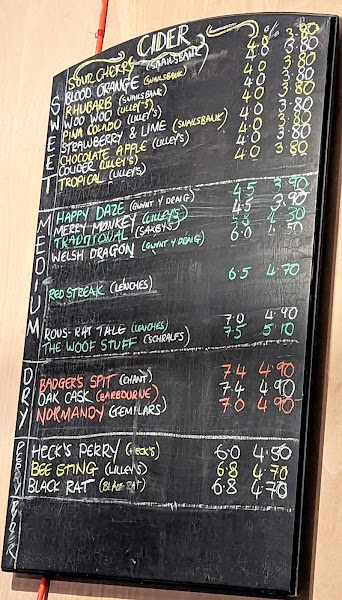 CIDER
SWEET
SOUR CHERRY (SNAILSBANK) 4.8 3.80
BLOOD ORANGE (SNAILSBANK) 4.0 3.80
RHUBARB (SNAILSBANK) 4.0 3.80
WOO WOO (LILLEY'S) 4.0 3.80
PINA COLADO (LILLEY'S) 4.0 3.80
STRAWBERRY & LIME (SNAILSBANK) 4.0 3.80
CHOCOLATE APPLE (LILLEY'S) 4.0 3.80
COLIDER (LILLEY'S) 4.0 3.80
TROPICAL (LILLEY'S)
MEDIUM
HAPPY DAZE (GWYNT Y DRAIG) 4.5 3.90
MERRY MONKEY (LILLEY'S) 4.5 3.90
TRADITIONAL (SAXBY'S) 4.30
WELSH DRAGON (GWYNT Y DRAIG) 6.0 4.50
RED STREAK (LENCHES) 6.5 4.70
ROUS-RAT TALE (LENCHES) 7.0 4.90
THE WOOF STUFF (SCHRALFS) 7.5 5.10
DRY
BADGER'S SPIT (CHANT) 7.4 4.90
OAK CASK (BARBOURNE) 7.4 4.90
NORMANDY (GEMLARS) 7.0 4.90
HECK'S PERRY (HECK'S) 6.0 4.50
BEE STING (LILLEY'S) 6.8 4.70
BLACK RAT (BLACK RAT) 6.8 4.70